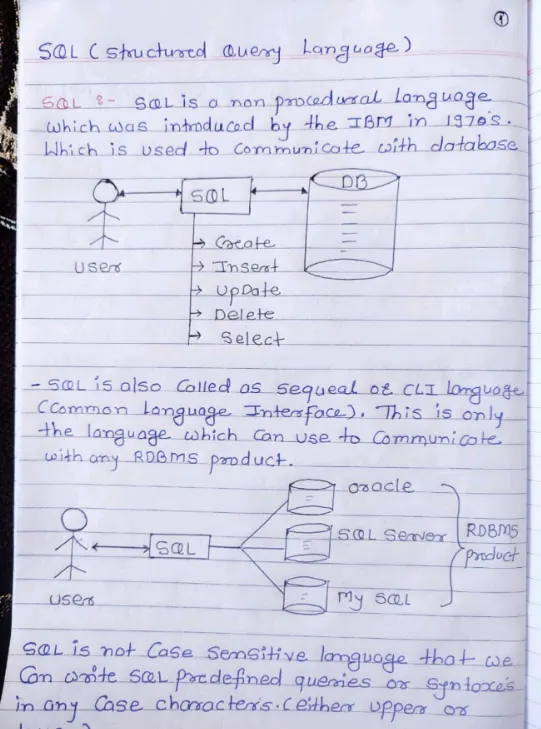 1
SQL (Structured Query Language)
SQL :- SQL is a non procedural Language
which was introduced by the IBM in 1970's.
Which is used to Communicate with database
DB
SQL
→ Create
User → Insert
→ UpDate
→ Delete
→ Select
- SQL is also Called as sequeal or CLI language
(Common Language Interface). This is only
the language which Can use to Communicate
with any RDBMS product.
Oracle
SQL Server RDBMS
SQL product
User My SQL
SQL is not Case Sensitive language that we
Can write SQL predefined queries or Syntaxe's
in any Case characters. (either upper or